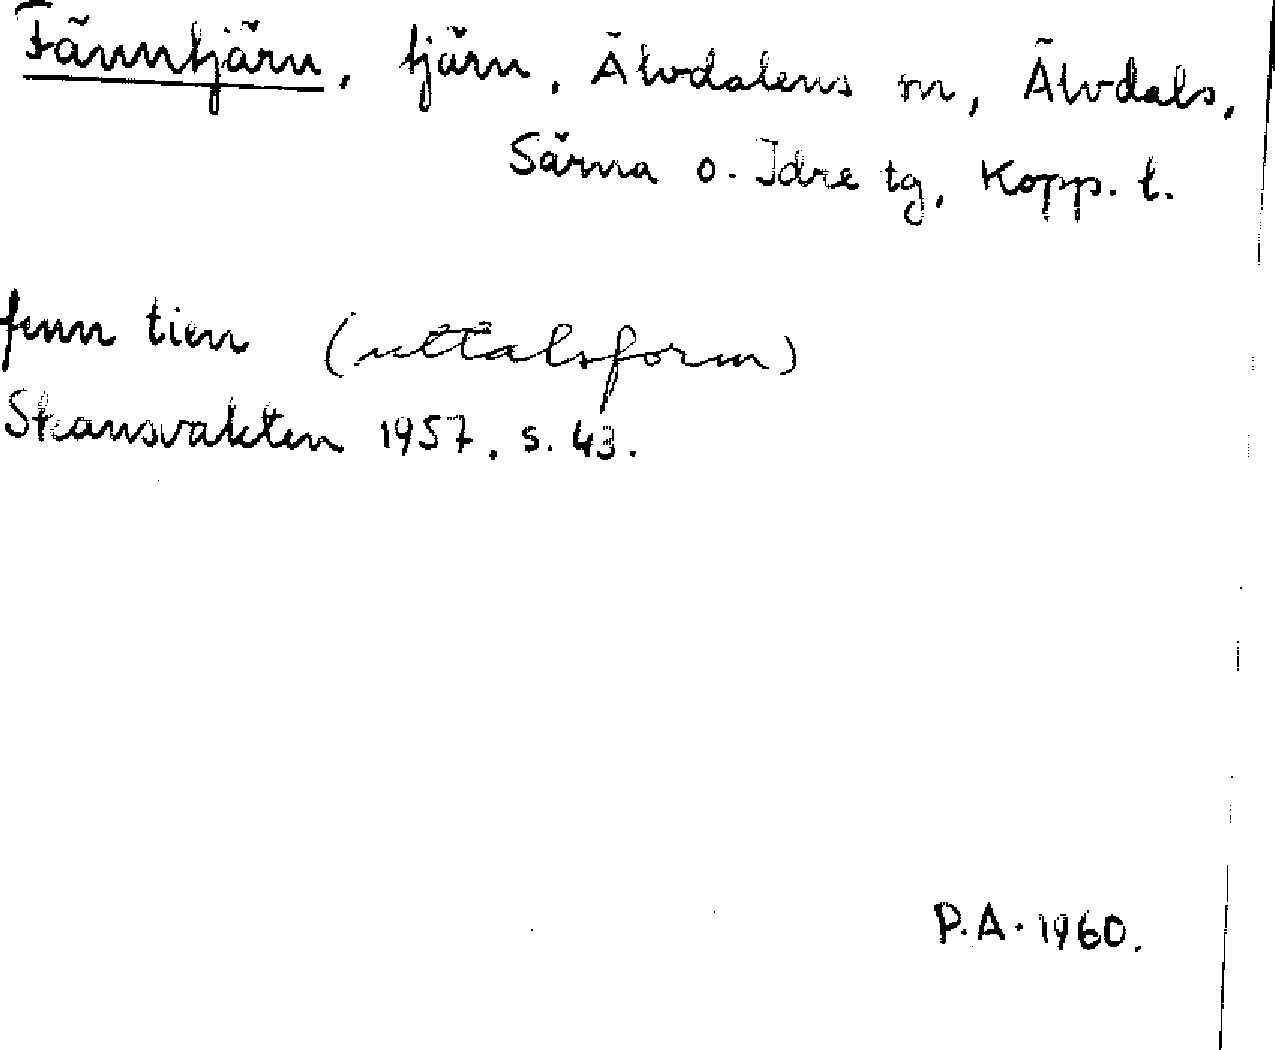 Fänntjärn, tjärn, Älvdalens sn, Älvdals,
Särna o. Idre tg, Kopp. l.
fenn tien (uttalsform)
Skansvakten 1957, s. 43.
P.A. 1960.